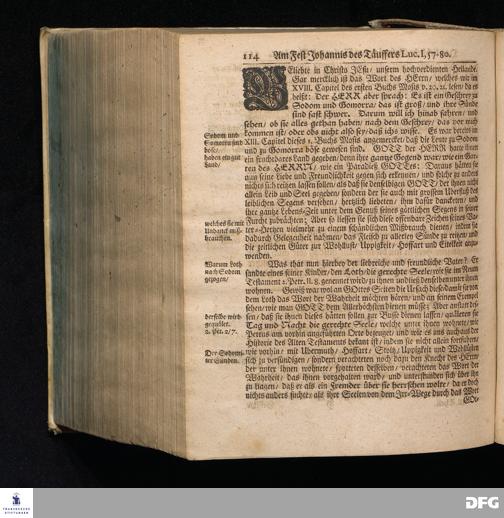 114 Am Fest Johannis des Täuffers Luc. I, 57-80.
Geliebte in Christo JEsu / unserm hochverdienten Heilande.
Gar mercklich ist das Wort des HErrn / welches wir in
XVIII. Capitel des ersten Buchs Mosis v. 20, 21. lesen / da es
heißt: Der HERR aber sprach: Es ist ein Geschrey zu
Sodom und Gomorra / das ist groß / und ihre Sünde
sind fast schwer. Darum will ich hinab fahren / und
sehen / ob sie alles gethan haben / nach dem Geschrey / das vor mich
kommen ist / oder obs nicht also sey / daß ichs wisse. Es war bereits im
XIII. Capitel dieses 1. Buchs Mosis angemercket / daß die Leute zu Sodom
und zu Gomorra böse gewesen sind. GOTT der HERR hatte ihnen
ein fruchtbares Land gegeben / denn ihre gantze Gegend war / wie ein Gar-
ten des HERRN / wie ein Paradieß GOTTes: Daraus hätten sie
nun seine Liebe und Freundlichkeit gegen sich erkennen / und solche zu anders
nichts sich reitzen lassen sollen / als daß sie denselbigen GOTT / der ihnen nicht
allein Leib und Seel gegeben / sondern der sie auch mit grossem Uberfluß des
leiblichen Segens versehen / hertzlich liebeten / ihm dafür danckten / und
ihre gantze Lebens-Zeit unter dem Genuß seines göttlichen Segens in seiner
Furcht zubrächten; Aber so liessen sie sich diese offenbare Zeichen seines Va-
ter-Hertzen vielmehr zu einem schändlichen Mißbrauch dienen / indem sie
dadurch Gelegenheit nahmen / das Fleisch zu allerley Sünde zu reitzen und
die zeitlichen Güter zur Wohllust / Uppigkeit / Hoffart und Eitelkeit anzu-
wenden.
Sodom und
Gomorra sind
böse /
haben ein gut
Land /
welches sie mit
Undanck miß-
brauchten.
Was that nun hierbey der liebreiche und freundliche Vater? Er
sandte eines seiner Kinder / den Loth / die gerechte Seele / wie sie im Neuen
Testament 2. Petr. II, 8. genennet wird / zu ihnen und ließ denselben unter ihnen
wohnen. Gewiß war wol an GOttes Seiten die Ursach dieses / damit sie von
dem Loth das Wort der Wahrheit möchten hören / und an seinem Exempel
sehen / wie man GOTT dem Allerhöchsten dienen müsse. Aber anstatt des-
sen / daß sie ihnen dieses hätten sollen zur Busse dienen lassen / quäleten sie
Tag und Nacht die gerechte Seele / welche unter ihnen wohnete / wie
Petrus am vorhin angeführten Orte bezeuget / und wie es uns auch aus der
Historie des Alten Testaments bekant ist / indem sie nicht allein fortfuhren
wie vorhin / mit Ubermuth / Hoffart / Stoltz / Uppigkeit und Wohllüsten
sich zu versündigen / sondern verachteten noch dazu den Knecht des HErrn /
der unter ihnen wohnete / spotteten desselben / verachteten das Wort der
Wahrheit / das ihnen vorgehalten ward / und unterstunden sich über ihn
zu klagen / daß er als ein Fremder über sie herrschen wolte / da er doch
nichts anders suchte / als ihre Seelen von dem Irr-Wege durch das Wort
GOt-
Warum Loth
nach Sodom
gezogen /
derselbe wird
gequälet.
2. Pet. 2/7.
Der Sodomi-
ter Sünden.
FRANCKESCHE
STIFTUNGEN
DFG